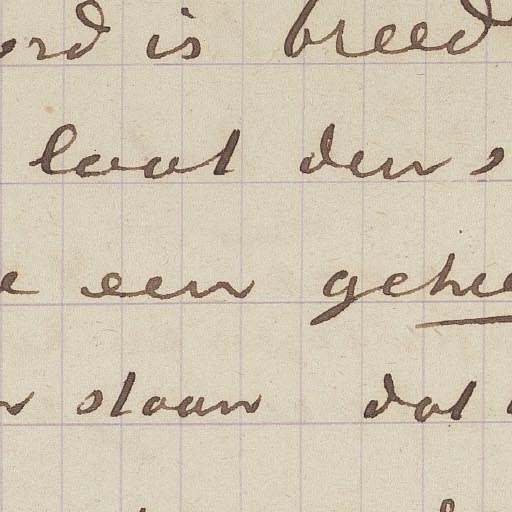 ord is breed
laat den s
e een gehee
n staan dat